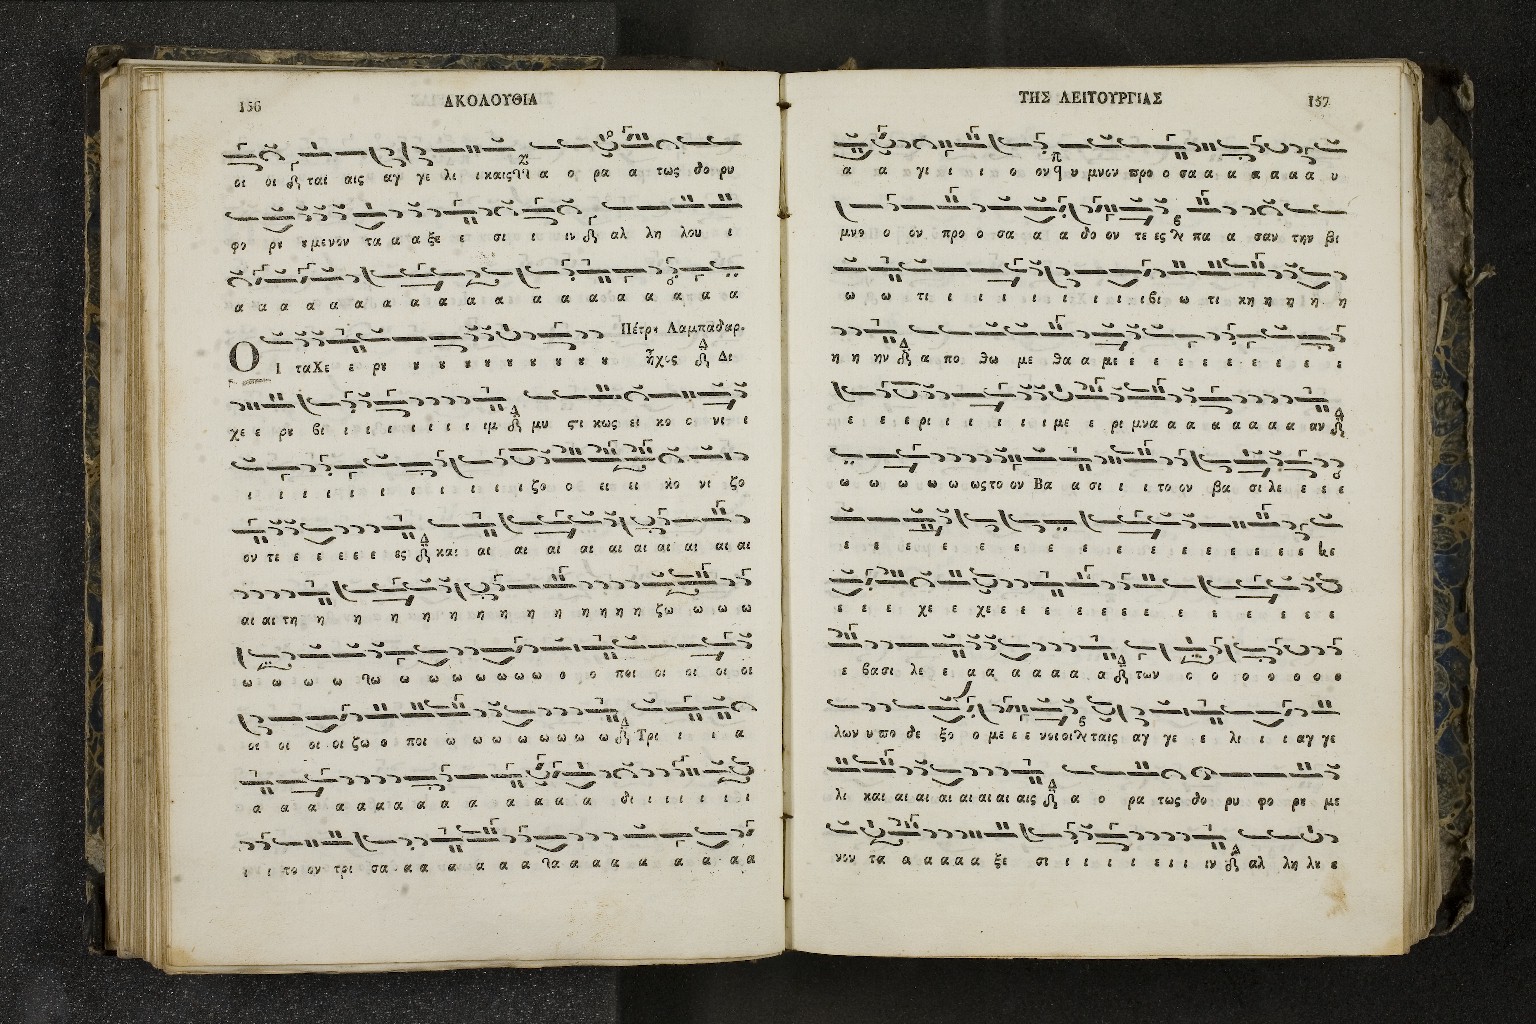 156 ΑΚΟΛΟΥΘΙΑ
οι οι ταί αις αγ γε λι ι καις α ο ρα α τως δο ρυ
φο ρυ υμενον τα α α ξε ε σι ι ιν αλ λη λου ι
α α α α α α α α α α α α α α α α α α α
Πέτρυ Λαμπαδαρ.
Ο Ι ταΧε ε ρυ υ υ υ υ υ υ υ υ υ ἦχος Δι
χε ε ρυ βι ι ι ι ι ι ι ι ιμ μυ στι κως ει κο ο νι ι
ι ι ι ι ι ι ι ι ι ι ι ι ζο ο ει ει κο νι ζο
ον τε ε ε ε ε ε ες και αι αι αι αι αι αι αι αι αι
αι αι τη η η η η η η η η η η η η ζω ω ω ω
ω ω ω ω ω ω ω ω ω ω ω ο ο ποι οι οι οι οι
οι οι οι οι ζω ο ποι ω ω ω ω ω ω ω ω Τρι ι ι α
α α α α α α α α α α α α α α δι ι ι ι ι ι
ι ι το ον τρι σα α α α α α α α α α α α α α α α
ΤΗΣ ΛΕΙΤΟΥΡΓΙΑΣ 157
α α γι ι ι ο ον υ μνον προ ο σα α α α α α α υ
μνο ο ον προ ο σα α α δο ον τε ες πα α σαν την βι
ω ω τι ι ι ι ι ι ι ι ιβι ω τι κη η η η η
η η ην α πο θω με θα α με ε ε ε ε ε ε ε ε ε
ε ε ε ε ρι ι ι ι ι ι με ε ρι μνα α α α α α α α αν
ω ω ω ω ω ως το ον Βα α σι ι ι το ον βα σι λε ε ε ε
ε ε ε ε ε ε ε ε ε ε ε ε ε ε ε ε ε κε
ε ε ε χε ε χε ε ε ε ε ε ε ε ε ε ε ε ε ε
ε βασι λε ε α α α α α α των ο ο ο ο ο ο ο
λων υ πο δε ξο ο με ε ε νοι οι ταις αγ γε ε λι ι ι αγ γε
λι και αι αι αι αι αι αι αις α ο ρα τως δο ρυ φο ρυ με
νον τα α α α α α ξε σι ι ι ι ι ε ι ι ιν αλ λη λυ ε